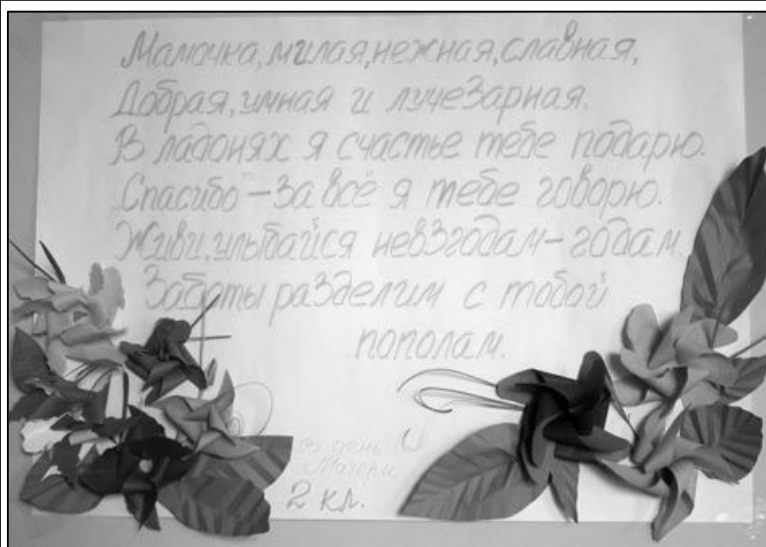 Мамочка, милая, нежная, славная,
Добрая, умная и лучезарная.
В ладонях я счастье тебе подарю.
„Спасибо" – за всё я тебе говорю.
Живи, улыбайся невзгодам – годам,
Заботы разделим с тобой
пополам.
В день
Матери
2 кл.